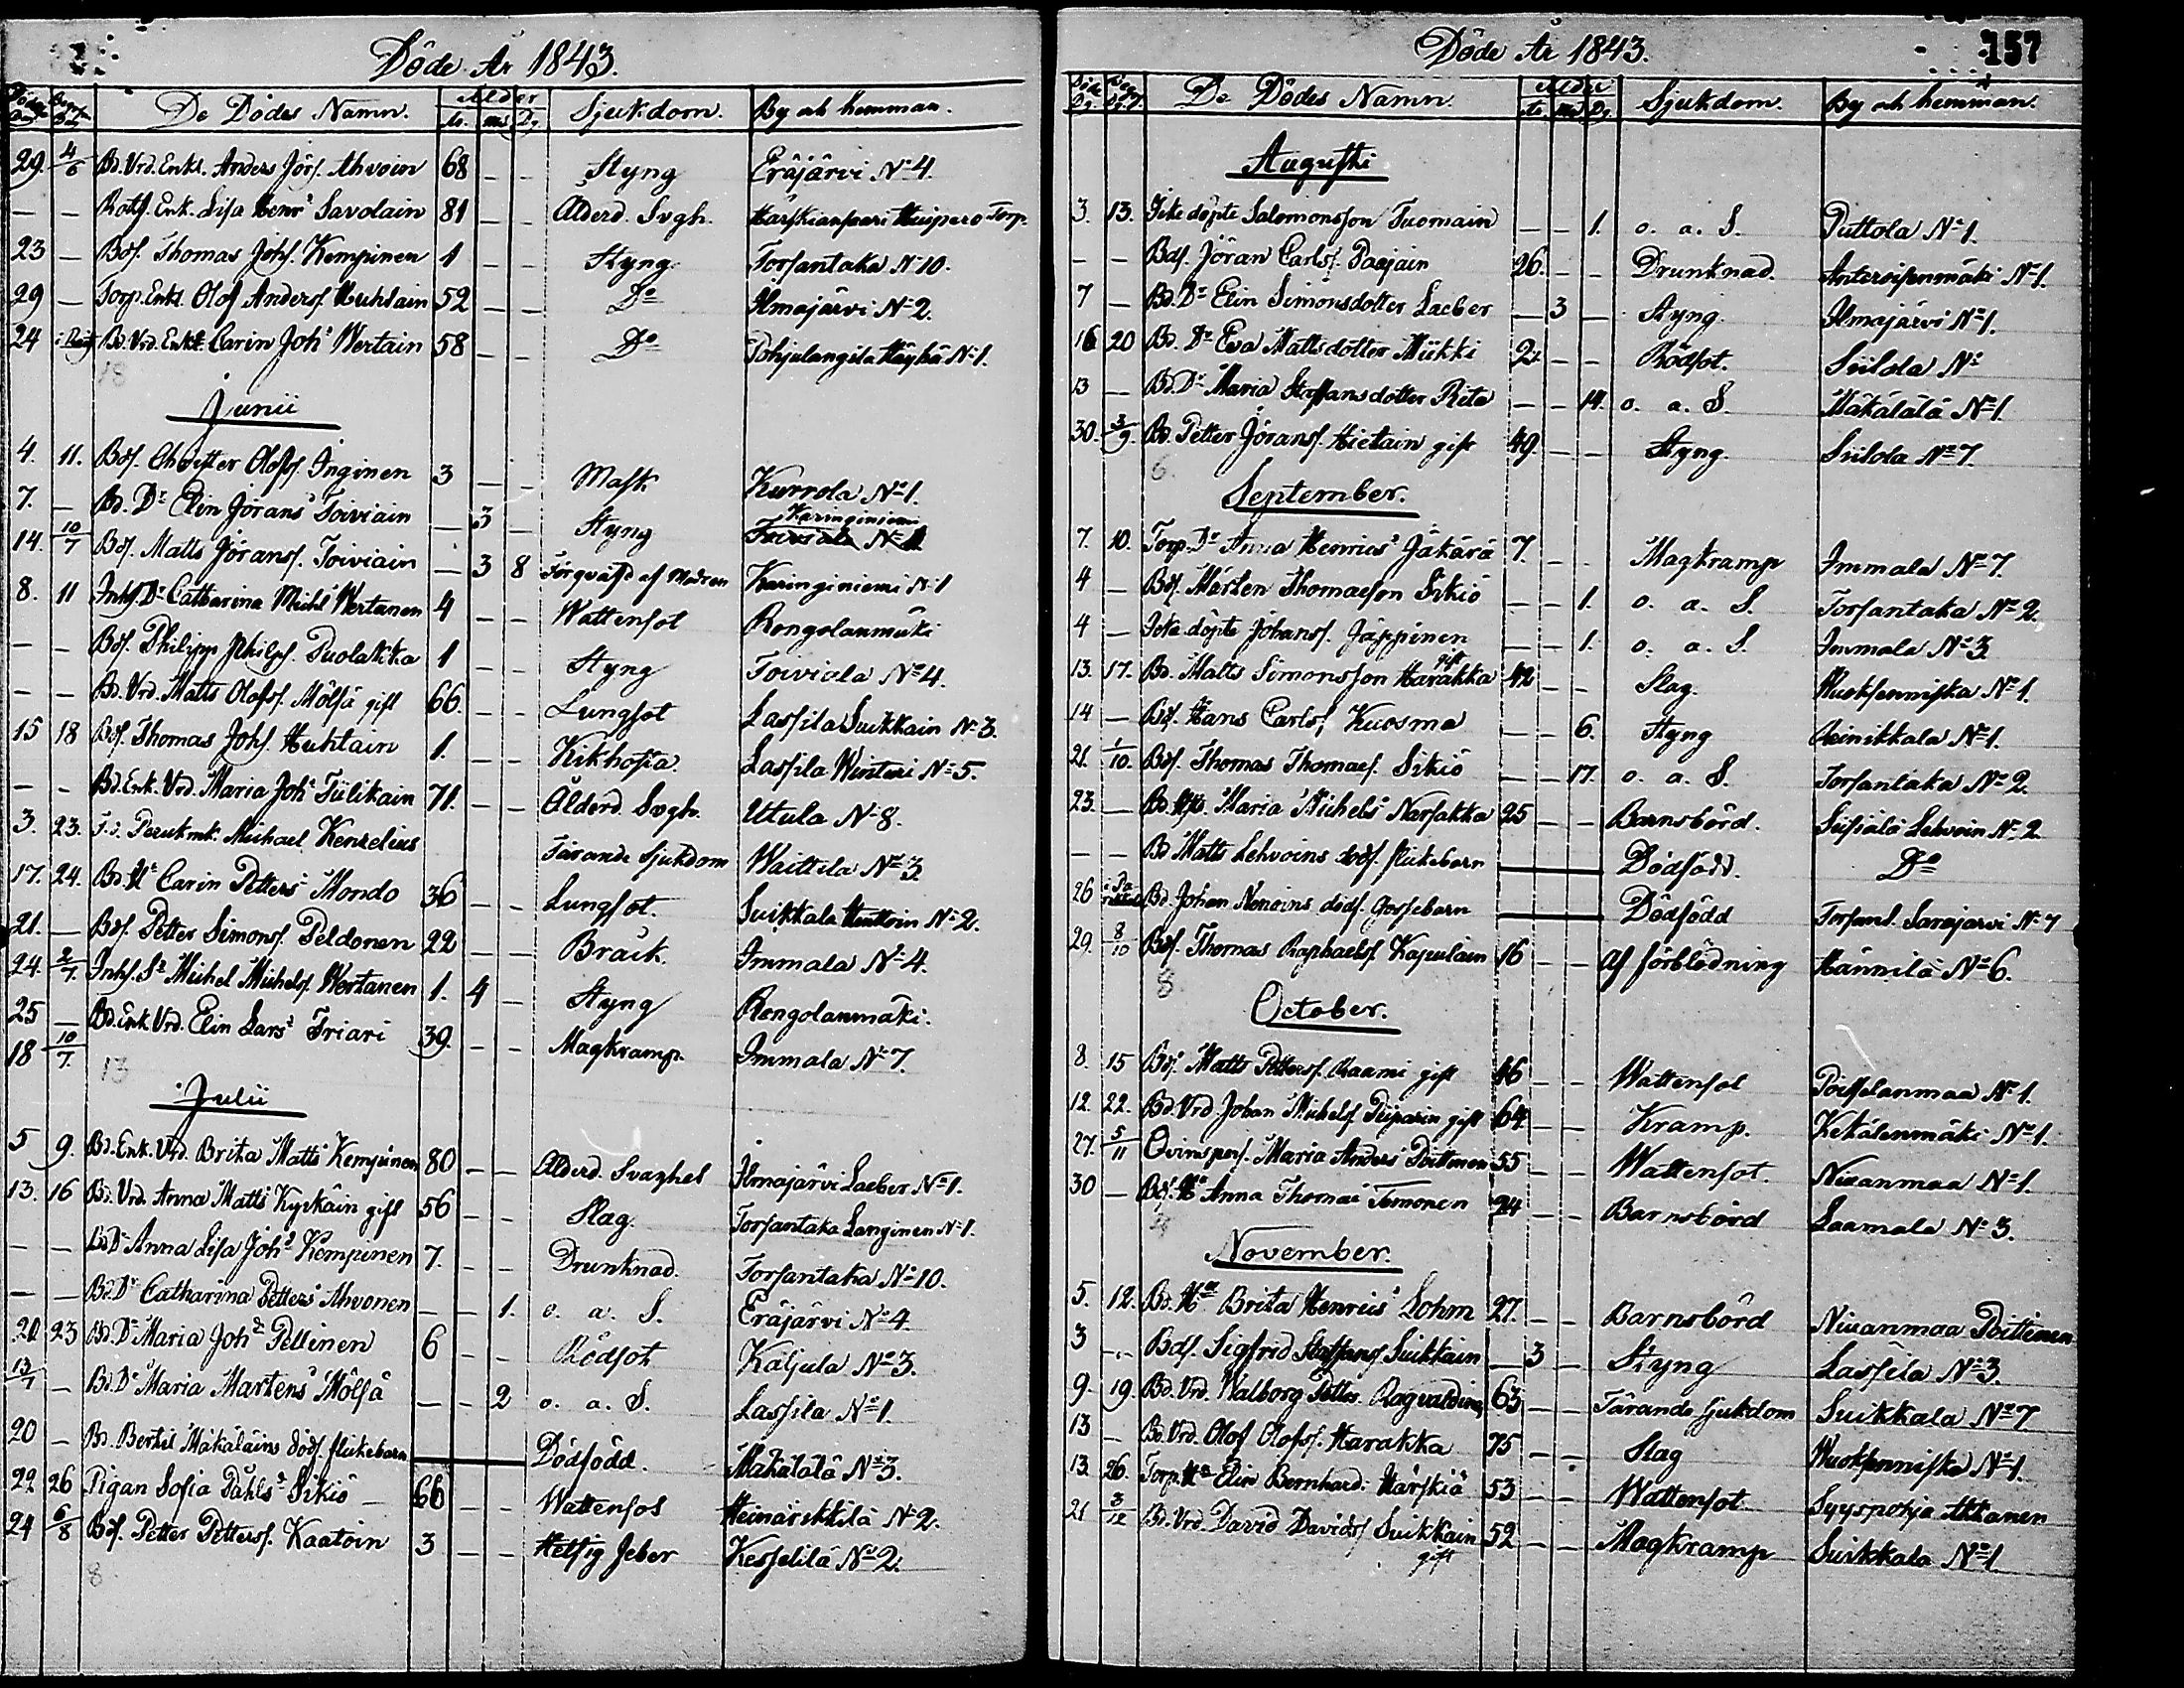 Döde År 1843.
Döde Dag Begr. Dag De Dödes Namn. Ålder År. Må Dg. Sjukdom. By och hemman.
29. 4/6 Bd. Vrd. Enkl. Anders Jörs. Ahvoin 68 - - Styng Eräjärvi No 4.
- - Enk. Lisa Henrs Savolain 81 - - Ålderd. Svgh. Torp.
23 - Bds. Thomas Johs. Kempinen 1 - - Styng Torsantaka No 10.
29 - Torp. Enkl. Olof Anders. Huhtain 52 - - Do Ilmajärvi No 2.
24 Bd. Vrd. Enk. Carin Johs Wertain 58 - - Do Pohjalangila Häyhä No 1.
18
Junii
4. 11. Bds. Christer Olofss. Inginen 3 - - Mask Kurrola No 1.
7. - Bd. Dr Elin Jörans Toiviain - 3 - Styng Karinginiemi Toiviala No 1
14. 10/7 Bds. Matts Jörans. Toiviain - 3 8 Förqväfd af Modren Karinginiemi No 1
8. 11 Inhs. Dr Catharina Michl Wertanen 4 - - Wattensot Rongolanmäki
- - Bds. Philipp Philps. Puolakka 1 - - Styng Toiviala No 4.
- - Bd. Vrd. Matts Olofss. Mölsä gift 66. - - Lungsot Lassila Suikkain No 3.
15 18 Bds. Thomas Johs. Huhtain 1. - - Kikhosta Lassila Winturi No 5.
- - Bd. Enk. Vrd. Maria Johs Tiilikain 71. - - Ålderd. Svgh. Utula No 8.
3. 23. Michael Kenzelius Tärande Sjukdom Waittila No 3.
17. 24. Bd. Hu Carin Petters Mondo 36 - - Lungsot. Suikkala No 2.
21. - Bds. Petter Simons. Peldonen 22 - - Bråck. Immala No 4.
24. 2/7. Inhs. Sn Michel Michels. Wertanen 1. 4 - Styng Rongolanmäki.
25 - Bd. Enk. Vrd. Elin Lars Friari 39. - - Magkramp. Immala No 7.
18 10/7
13
Julii
5 9. Bd. Enk. Vrd. Brita Matts Kempinen 80 - - Ålderd. Svaghet Ilmajärvi Laeber No 1.
13. 16 Bd. Vrd. Anna Matts Kyrkäin gift 56 - - Slag. Torsantaka Langinen No 1.
- - Bd Dr Anna Lisa Johs Kempinen 7. - - Drunknad. Torsantaka No 10.
- - Bd. Dr Catharina Petters Ahvonen - - 1. o. a. S. Eräjärvi No 4.
20 23 Bd. Dr Maria Johs Pellinen 6 - - Rödsot Käljula No 3.
13/7 - Bd. Dr Maria Martens Mölsä - - 2 o. a. S. Lassila No 1.
20 - Bd. Bertil Mäkäläins döds. flickebarn Dödfödd. Mäkälälä No 3.
22 26 Pigan Sofia Påhls Sikiö - 66 - - Wattensot No 2.
24 6/8 Bds. Petter Petterss. Kaatoin 3 - - Hetsig feber Kesselilä No 2.
8
157
Döde År 1843.
Döde Dg. De Dödes Namn. Ålder År. Må Dg. Sjukdom. By och hemman.
Augusti
3. 13. Icke döpte Salomonsson Tuomain - - 1. o. a. S. Puttola No 1.
- - Bds. Jöran Carlss. Paajain 26. - - Drunknad. No 1.
7 - Bd. Dr Elin Simonsdotter Laeber - 3 - Styng Ilmajärvi No 1.
16 20 Bd. Dr Eva Mattsdotter Mükki 2. - - Rödsot. Siilola No
13 - Bd. Dr Maria Staffansdotter Rite - - 14. o. a. S. Mäkälälä No 1.
30. 3/9. Bd. Petter Jörans. Hietain gift 49. - - Styng. Siilola No 7.
6.
September.
7. 10. Torp. Dr Anna Henrics Jäkärä 7. - - Magkramp Immala No 7.
4 - Bds. Mårten Thomasson Sikiö - - 1. o. a. S. Torsantaka No 2.
4 - Icke döpte Johans. Jäppinen - - 1. o. a. S. Immala No 3
13. 17. Bd. Matts Simonsson Harakka gift 42 - - Slag. Wuoksenniska No 1.
14 - Bds. Hans Carlss. Kuosma - - 6. Styng No 1.
21. 1/10. Bds. Thomas Thomass. Sikiö - - 17. o. a. S. Torsantaka No 2.
23. - Bd. Maria Michels Narsakka 25 - - Barnsbörd. Lehvoin No 2
- - Bd Matts Lehvoins döds. flickebarn Dödfödd. Do
26 Bd. Johan Nonoins döds. gossebarn Dödfödd Torsant. Sarajärvi No 7
29. 8/10 Bds. Thomas Raphaels. Kapulain 16 - - af förblödning Hännilä No 6.
8
October.
8. 15 Bds. Matts Petterss. Raami gift 46 - - Wattensot No 1.
12. 22. Bd. Vrd. Johan Michels. Piiparin gift 64. - - Kramp. Kekälenmäki No 1.
27. 5/11 Maria Anders Poittinen 55 - - Wattensot. Niuanmaa No 1.
30 - Bds. Hu Anna Thomas Temonen 24 - - Barnsbörd Laamala No 3.
4
November.
5. 12. Bd. Hu Brita Henrics Lohm 27. - - Barnsbörd Niuanmaa Poittinen
3 - Bds. Sigfrid Staffans. Suikkain - 3 - Styng Lassila No 3.
9. 19. Bd. Vrd. Walborg Petters. 63 - - Tärande sjukdom Suikkala No 7.
13 - Bd. Vrd. Olof Olofss. Harakka 75 - - Slag Wuoksenniska No 1.
13. 26. Torp. Hu Elin Bernhard. Härskiä 53 - - Wattensot Syyspohja Akkanen
21 3/12 Bd. Vrd. David Davidss. Suikkain gift 52 - - Magkramp Suikkala No 1